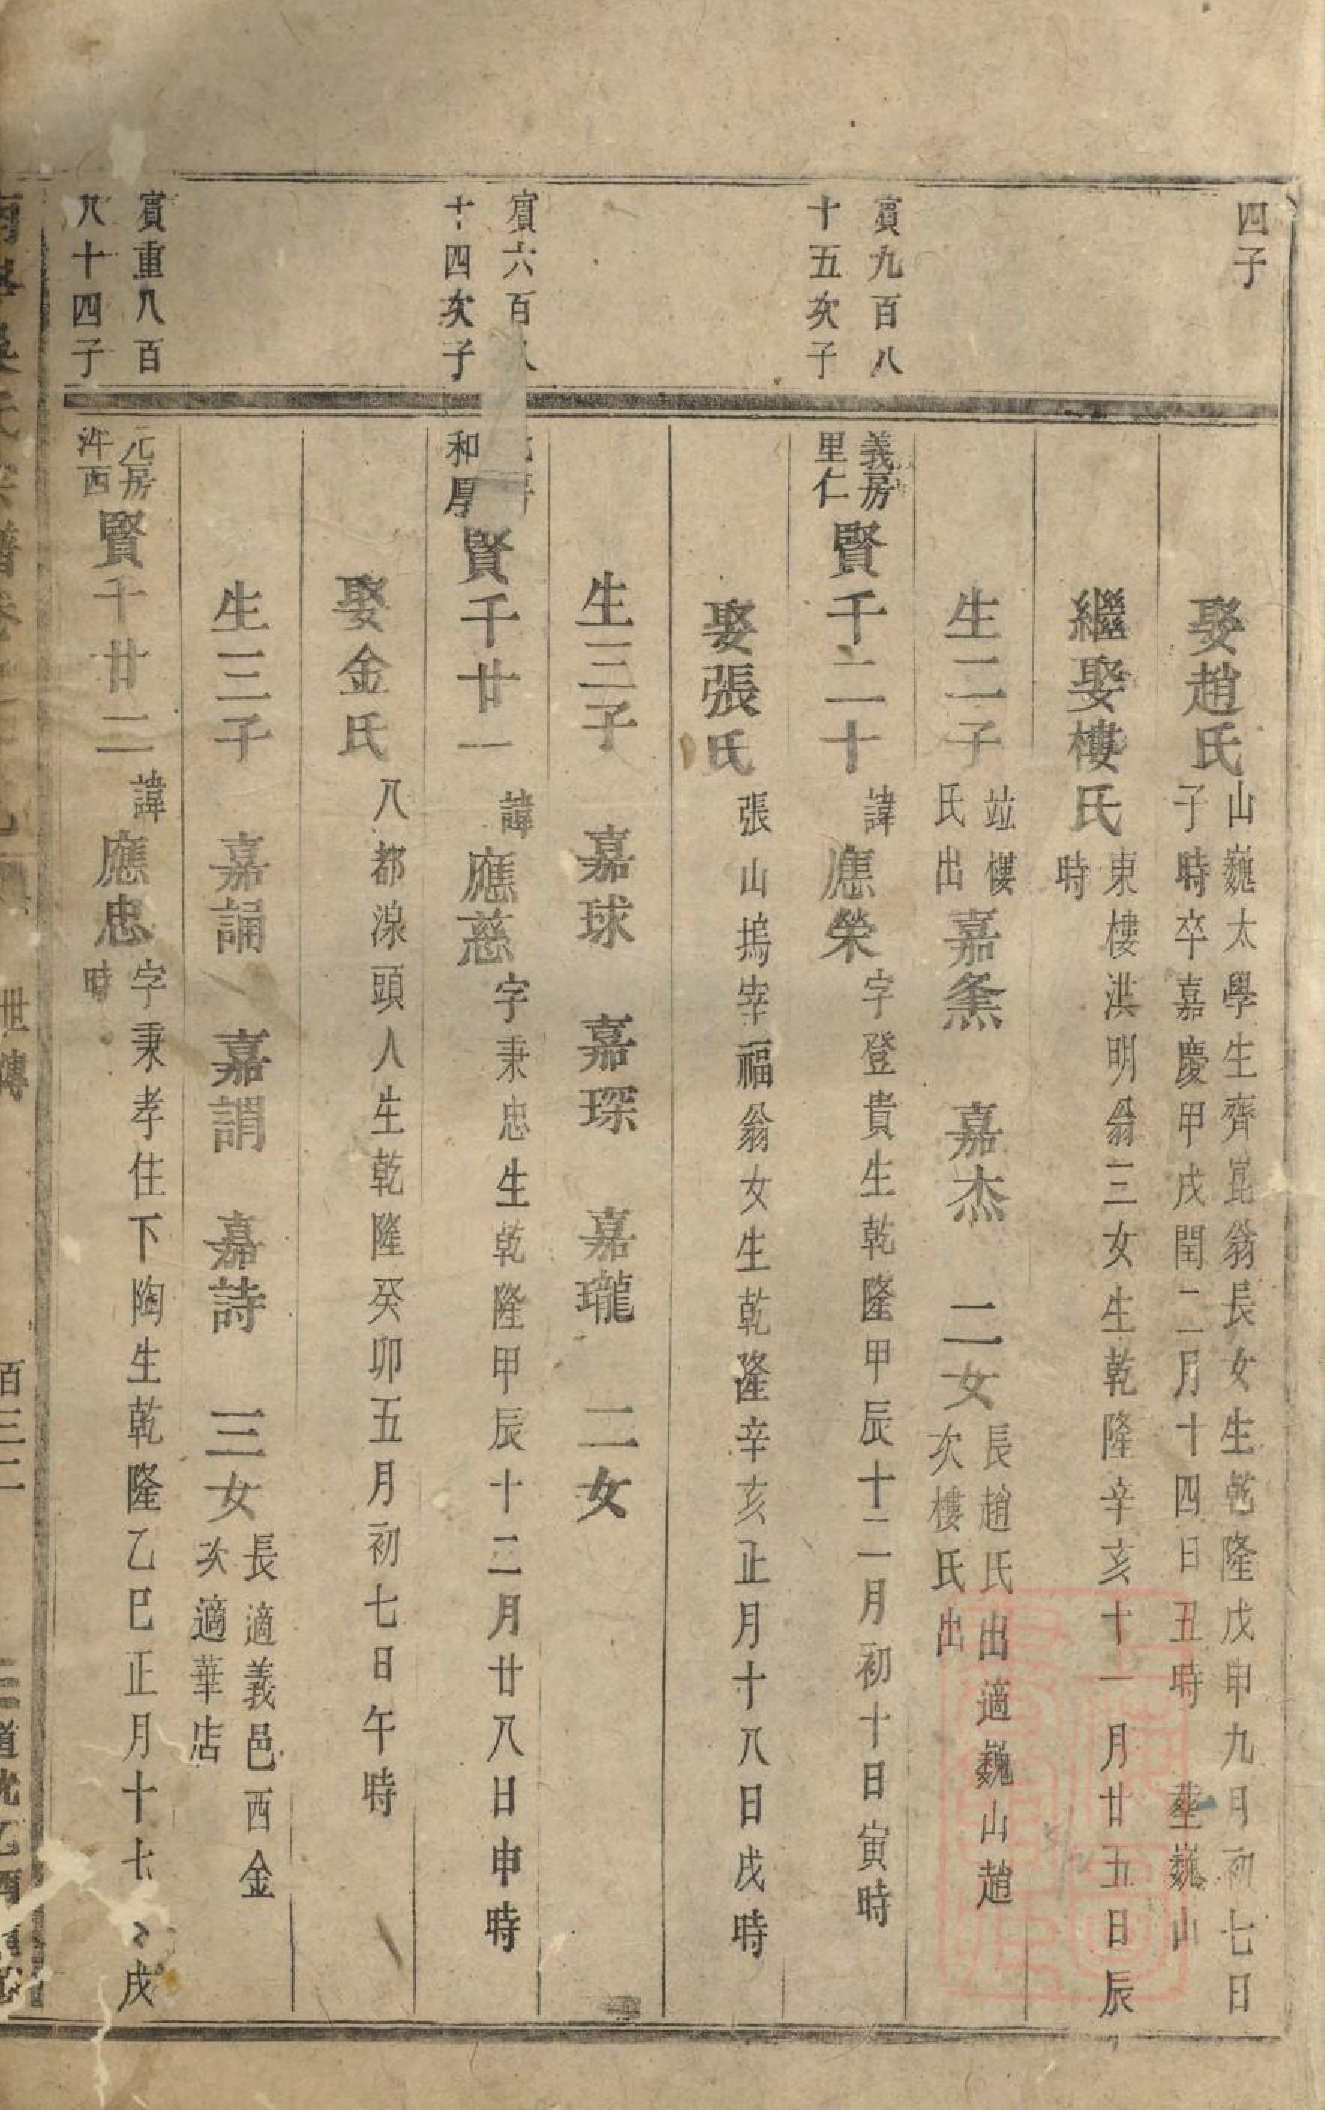 四子
娶趙氏 山巍太學生齊崑翁長女生乾隆戊申九月初七日子時卒嘉慶甲戌閏二月十四日丑時 塟巍山
繼娶樓氏 東樓洪明翁三女生乾隆辛亥十一月廿五日辰時
生二子 竝樓氏出 嘉 嘉杰 二女 長趙氏出適巍山趙次樓氏出
賓九百八十五次子
義房里仁 賢千二十 諱應榮 字登貴生乾隆甲辰十二月初十日寅時
娶張氏 張山塢宰福翁女生乾隆辛亥正月十八日戌時
生三子 嘉球 嘉琛 嘉瓏 二女
賓六百八十四次子
和 賢千廿一 諱應慈 字秉忠生乾隆甲辰十二月廿八日申時
娶金氏 八都湶頭人生乾隆癸卯五月初七日午時
生三子 嘉誦 嘉謂 嘉詩 三女 長適義邑西金次適華店
賓重八百八十四子
元房泮西 賢千廿二 諱應忠 字秉孝住下陶生乾隆乙巳正月十七 戌時
世傳
百三二